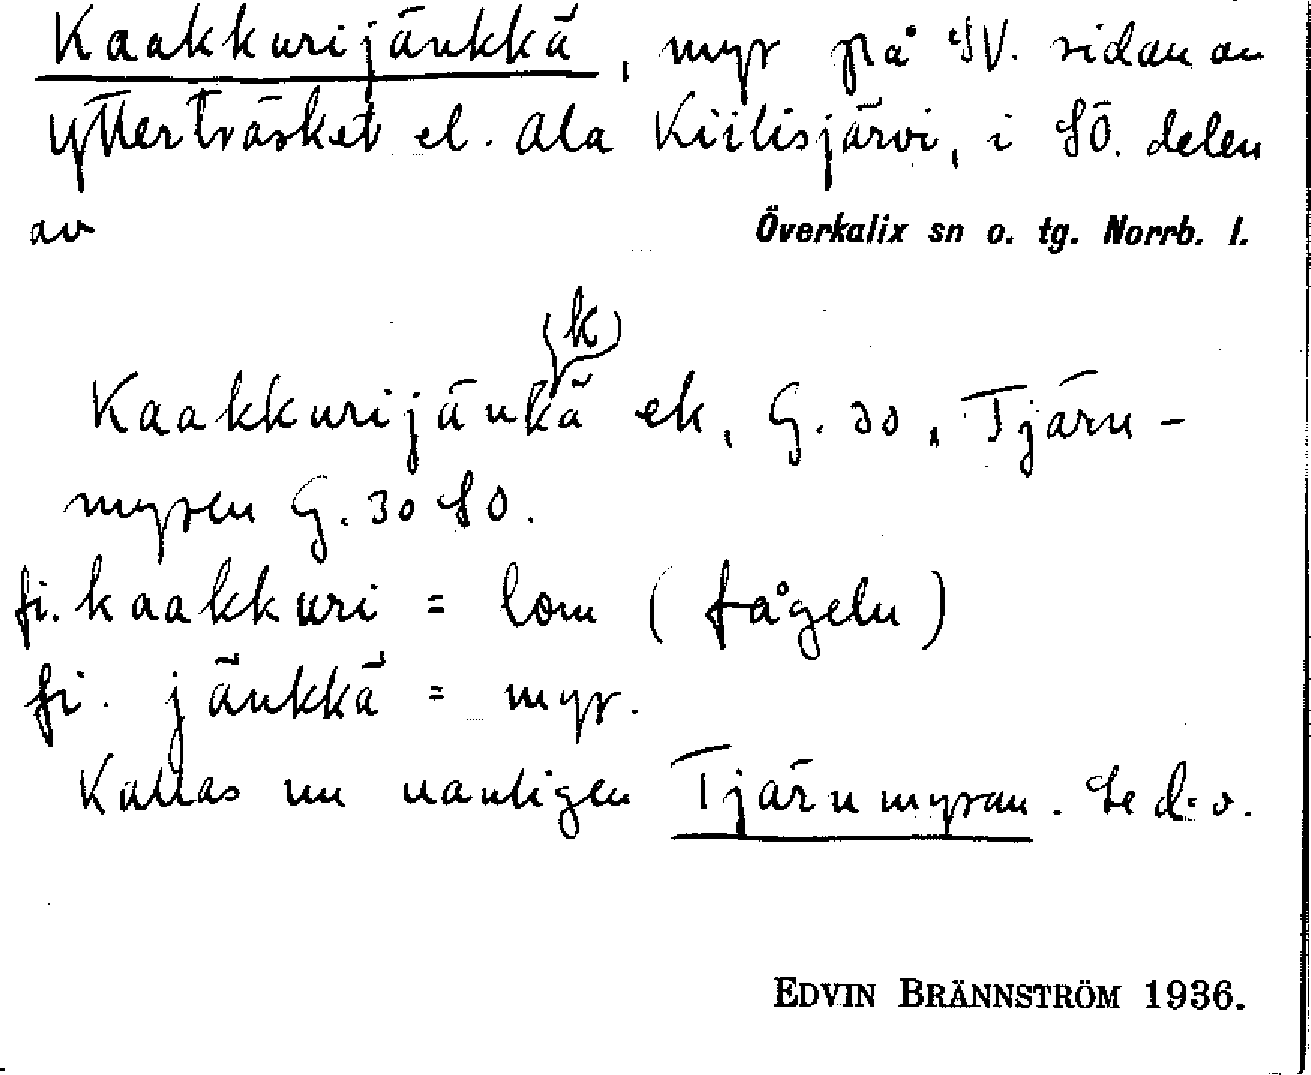 Kaakkurijänkkä, myr på SV. sidan av
Ytterträsket el. Ala Kiilisjärvi, i SÖ. delen
av Överkalix sn o. tg. Norrb. l.
(k)
Kaakkurijänkä ek, G. 30, Tjärn-
myren G. 30 SO.
fi. kaakkuri = lom (fågeln)
fi. jänkkä = myr.
Kallas nu vanligen Tjärnmyran. Se d:o.
EDVIN BRÄNNSTRÖM 1936.